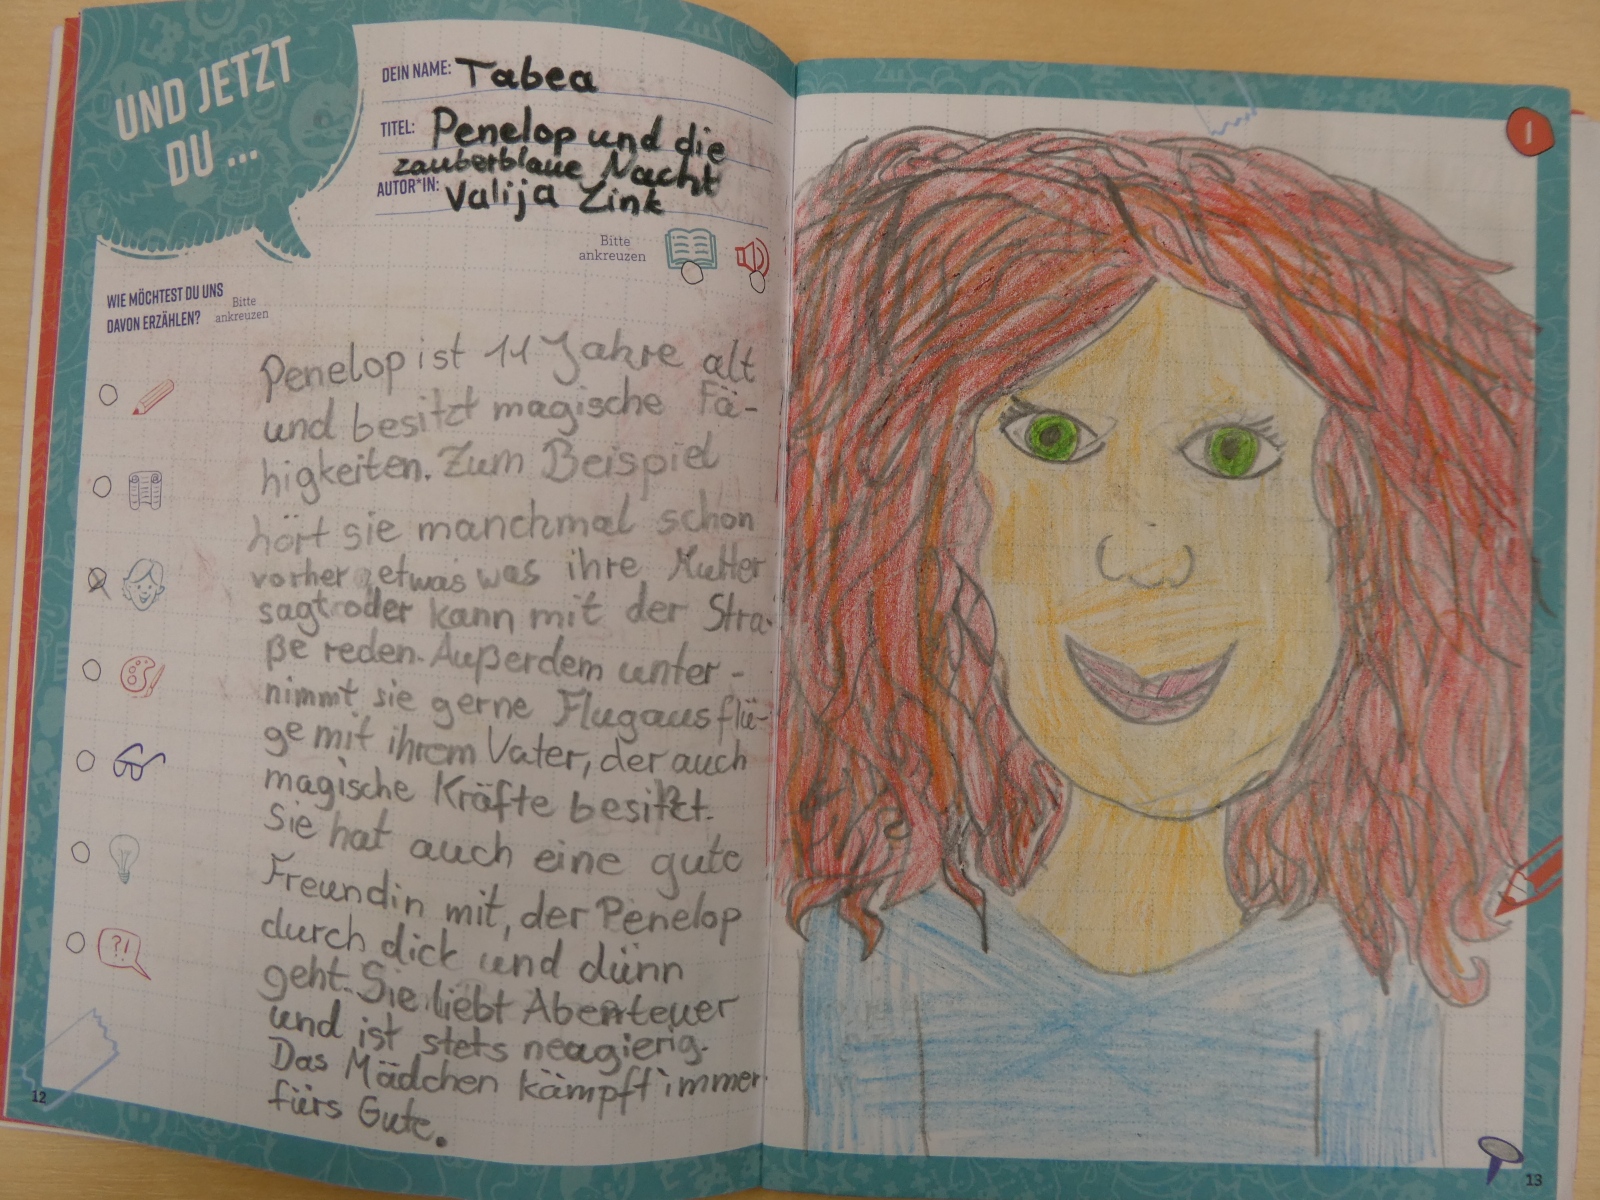 UND JETZT
DU ...
DEIN NAME: Tabea
TITEL: Penelop und die
zauberblaue Nacht
AUTOR*IN: Valija Zink
Bitte
ankreuzen
WIE MÖCHTEST DU UNS
DAVON ERZÄHLEN?
Bitte
ankreuzen
Penelop ist 11 Jahre alt
und besitzt magische Fä-
higkeiten. Zum Beispiel
hört sie manchmal schon
vorher etwas was ihre Mutter
sagt oder kann mit der Stra-
ße reden. Außerdem unter-
nimmt sie gerne Flugausflü-
ge mit ihrem Vater, der auch
magische Kräfte besitzt.
Sie hat auch eine gute
Freundin mit, der Penelop
durch dick und dünn
geht. Sie liebt Abenteuer
und ist stets neagierig.
Das Mädchen kämpft immer
fürs Gute.
?!
12
1
13